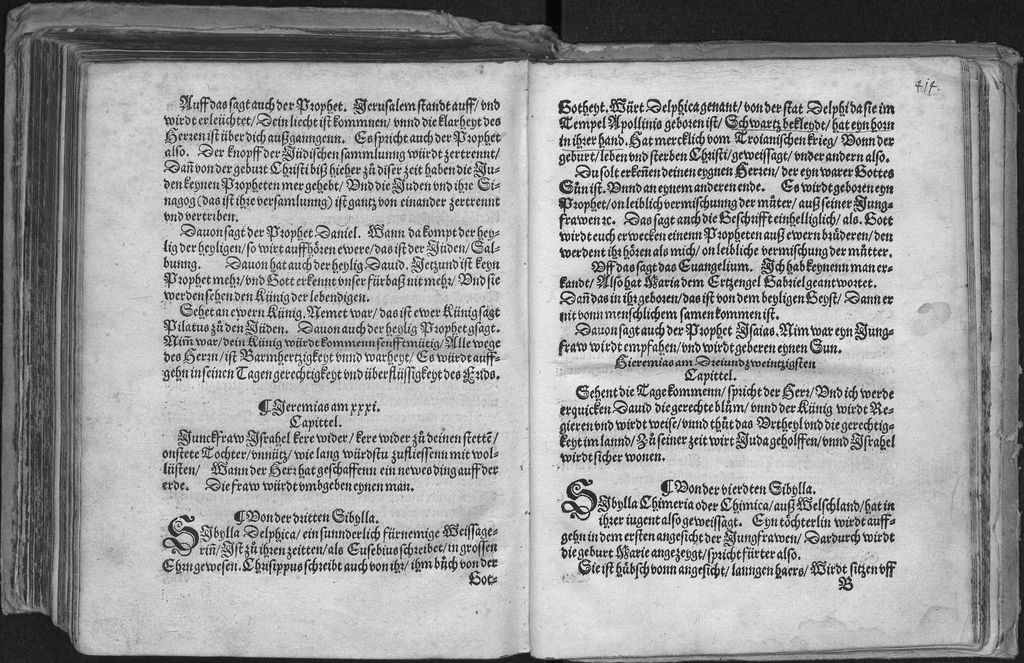 Auff das sagt auch der Prophet. Jerusalem standt auff/ vnd
wirdt erleüchtet/ Dein liecht ist kommnen/ vnnd die klarheyt des
Herren ist über dich außganngenn. Es spricht auch der Prophet
also. Der knopff der Jüdischen sammlunng würdt zertrennt/
Dañ von der geburt Christi biß hieher zů diser zeit haben die Ju-
den keynen Propheten mer gehebt/ Vnd die Juden vnd ihre Si-
nagog (das ist ihre versamlunng) ist gantz von einander zertrennt
vnd vertriben.
Dauon sagt der Prophet Daniel. Wann da kompt der hey-
lig der heyligen/ so wirt auffhören ewere/ das ist der Jüden/ Sal-
bunng. Dauon hat auch der heylig Dauid. Jetzund ist keyn
Prophet mehr/ vnd Gott erkennt vnser fürbaß nit mehr/ Vnd sie
werden sehen den Künig der lebendigen.
Sehet an ewern Künig. Nemet war/ das ist ewer Künig sagt
Pilatus zů den Jüden. Dauon auch der heylig Prophet gsagt.
Nim̃ war/ dein Künig würdt kommen senfftmütig/ Alle wege
des Herrn/ ist Barmhertzigkeyt vnnd warheyt/ Es würdt auff-
gehn in seinen Tagen gerechtigkeyt vnd überflüssigkeyt des Frids.
¶ Jeremias am xxxi.
Capittel.
Junckfraw Jsrahel kere wider/ kere wider zů deinen stettẽ/
onstete Tochter/ vnnütz/ wie lang würdstu zufliessenn mit wol-
lüsten/ Wann der Herr hat geschaffenn ein newes ding auff der
erde. Die fraw würdt vmbgeben eynen man.
¶ Von der dritten Sibylla.
SJbylla Delphica/ ein sunnderlich fürnemige Weissage-
riñ/ Jst zů ihren zeitten/ als Eusebius schreibet/ in grossen
Ehrn gewesen. Chrisippus schreibt auch von ihr/ ihm bůch von der
Got-
414.
Gotheyt. Würt Delphica genant/ von der stat Delphi da sie im
Tempel Apollinis geboren ist/ Schwartz bekleydt/ hat eyn horn
in ihrer hand. Hat mercklich vom Troianischen krieg/ Vonn der
geburt/ leben vnd sterben Christi/ geweissagt/ vnder andern also.
Du solt erkeñen deinen eygnen Herren/ der eyn warer Gottes
Sůn ist. Vnnd an eynem anderen ende. Es wirdt geboren eyn
Prophet/ on leiblich vermischunng der můter/ auß seiner Jung-
frawen ꝛc. Das sagt auch die Geschrifft einhelliglich/ als. Gott
wirdt euch erwecken einenn Propheten auß ewern brüderen/ den
werdent ihr hören als mich/ on leibliche vermischung der můtter.
Vff das sagt das Euangelium. Jch hab keynenn man er-
kandt/ Also hat Maria dem Ertzengel Gabriel geantwortet.
Dañ das in ihr geboren/ das ist von dem heyligen Geyst/ Dann er
nit vonn menschlichem samen kommen ist.
Dauon sagt auch der Prophet Jsaias. Nim war eyn Jung-
fraw wirdt empfahen/ vnd wirdt geberen eynen Sun.
Hieremias am Dreiundzweintzigsten
Capittel.
Sehent die Tage kommenn/ spricht der Herr/ Vnd ich werde
erquicken Dauid die gerechte blům/ vnnd der Künig wirdt Re-
gieren vnd wirdt weise/ vnnd thůt das Vrtheyl vnd die gerechtig-
keyt im lannd/ Zů seiner zeit wirt Juda geholffen/ vnnd Jsrahel
wirdt sicher wonen.
¶ Von der vierdten Sibylla.
SJbylla Chimeria oder Chimica/ auß Welschland/ hat in
ihrer iugent also geweissagt. Eyn töchterlin wirdt auff-
gehn in dem ersten angesicht der Jungfrawen/ Dardurch wirdt
die geburt Marie angezeygt/ spricht fürter also.
Sie ist hübsch vonn angesicht/ lanngen haers/ Wirdt sitzen vff
B